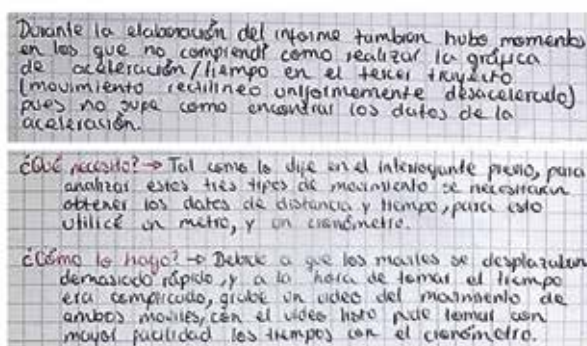 Durante la elaboración del informe tambien hubo momentos
en los que no comprendí como realizar la gráfica
de aceleración/tiempo en el tercer trayecto
(movimiento rectilineo uniformemente desacelerado)
pues no supe como encontrar los datos de la
aceleración.
¿Qué necesito? → Tal como lo dije en el interrogante previo, para
analizar estos tres tipos de movimiento se necesitaron
obtener los datos de distancia y tiempo, para esto
utilicé un metro, y un cronómetro.
¿Cómo lo hago? → Debido a que los moviles se desplazaban
demasiado rápido, y a la hora de tomar el tiempo
era complicado, grabe un video del movimiento de
ambos moviles, con el video listo pude tomar con
mayor facilidad los tiempos con el cronómetro.